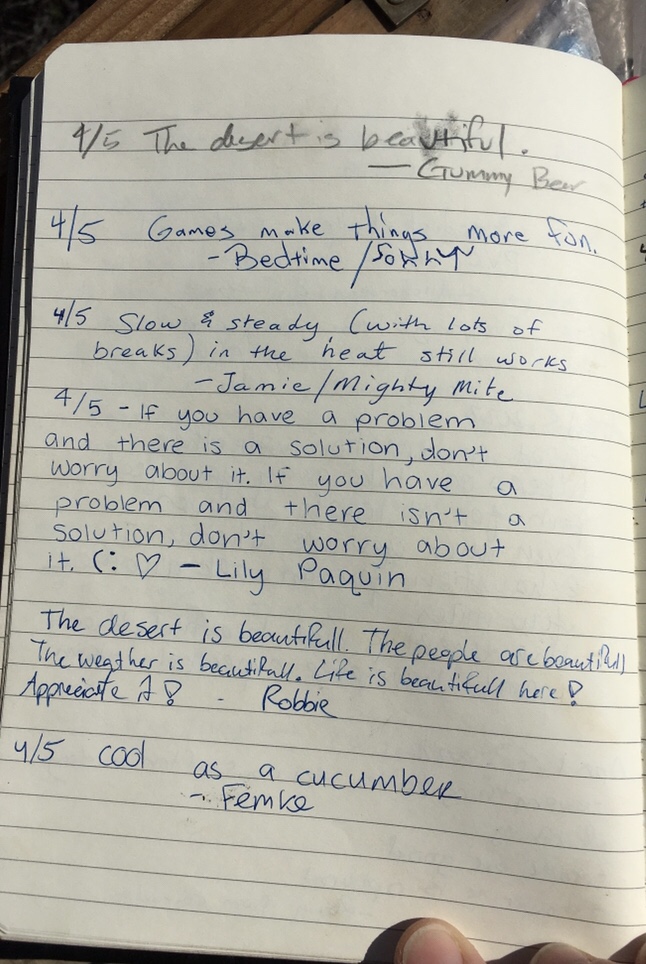 4/5 The desert is beautiful.
— Gummy Bear
4/5 Games make things more fun.
- Bedtime /
4/5 Slow & steady (with lots of
breaks) in the heat still works
- Jamie/Mighty Mite
4/5 - If you have a problem
and there is a solution, don't
worry about it. If you have a
problem and there isn't a
solution, don't worry about
it. (: ♡ - Lily Paquin
The desert is beautifull. The people are beautifull
The weather is beautifull. Life is beautifull here!
Appreciate it! - Robbie
4/5 cool as a cucumber
- Femke